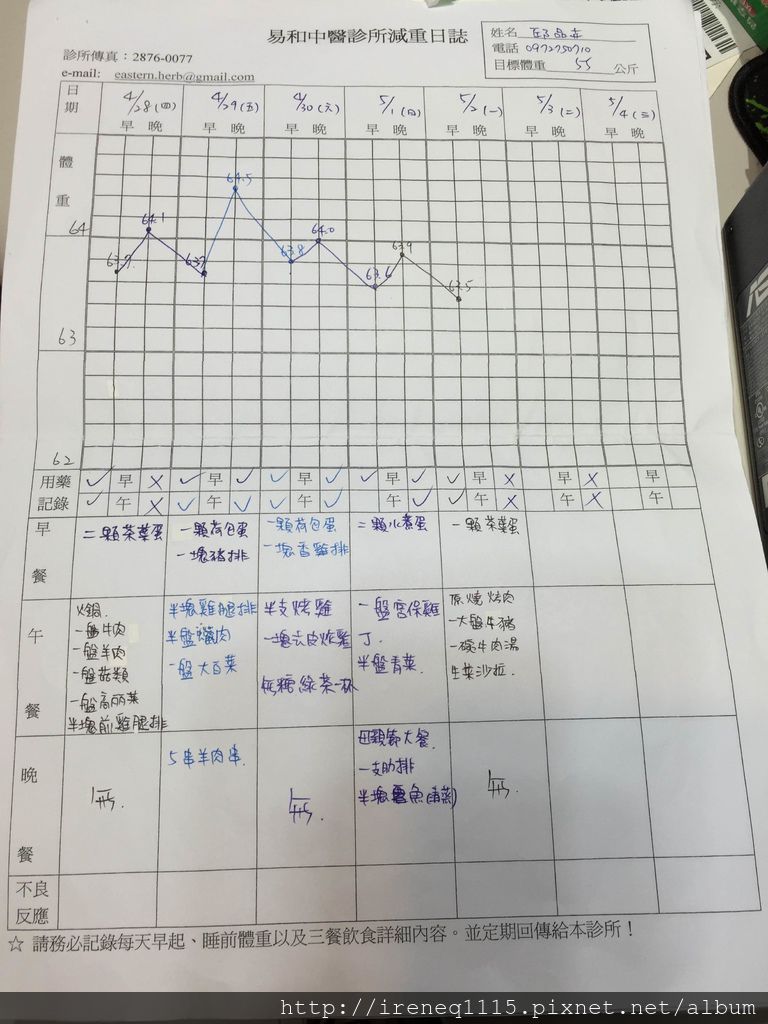 易和中醫診所減重日誌
診所傳真：2876-0077
e-mail: eastern.herb@gmail.com
姓名
電話 0972750710
目標體重 55 公斤
日期 4/28(四) 4/29(五) 4/30(六) 5/1(日) 5/2(一) 5/3(二) 5/4(三)
早 晚 早 晚 早 晚 早 晚 早 晚 早 晚 早 晚
體重
64
63
62
63.7 64.1 63.7 64.5 63.8 64.0 63.6 63.9 63.5
用藥 ✓ 早 ✗ ✓ 早 ✓ ✓ 早 ✓ ✓ 早 ✓ ✓ 早 ✗ 早 ✗ 早
記錄 ✓ 午 ✗ ✓ 午 ✓ ✓ 午 ✓ 午 ✓ ✓ 午 ✗ 午 ✗ 午
早餐
二顆茶葉蛋
一顆荷包蛋
一塊豬排
一顆荷包蛋
一塊香雞排
二顆水煮蛋
一顆茶葉蛋
午餐
火鍋
一盤牛肉
一盤羊肉
一盤菇類
一盤高丽菜
半塊煎雞腿排
半塊雞腿排
半盤
一盤大白菜
半支烤雞
一塊去皮炸雞
低糖綠茶一杯
一盤宮保雞
丁
半盤青菜
原燒烤肉
一大盤牛豬
一碗牛肉湯
生菜沙拉
晚餐
無
5串羊肉串
無
母親節大餐
一支肋排
半塊鱈魚(清蒸)
無
不良反應
☆ 請務必記錄每天早起、睡前體重以及三餐飲食詳細內容。並定期回傳給本診所！
http://ireneq1115.pixnet.net/album